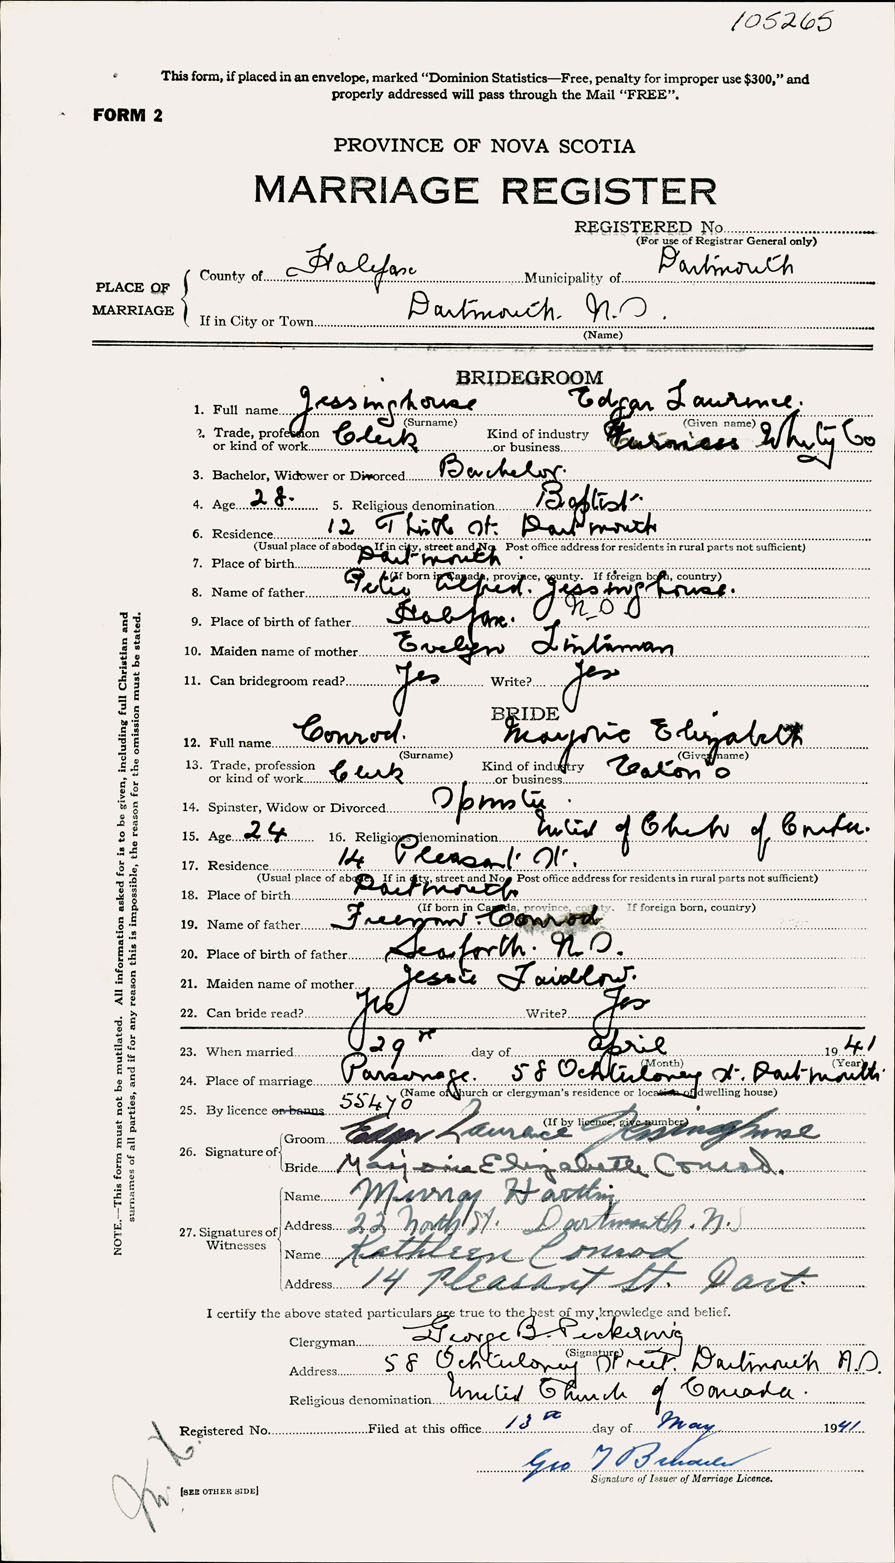 105265
This form, if placed in an envelope, marked “Dominion Statistics—Free, penalty for improper use $300,” and
properly addressed will pass through the Mail “FREE”.
FORM 2
PROVINCE OF NOVA SCOTIA
MARRIAGE REGISTER
REGISTERED No.
(For use of Registrar General only)
PLACE OF MARRIAGE
County of Halifax Municipality of Dartmouth
If in City or Town Dartmouth. N.S.
(Name)
BRIDEGROOM
1. Full name Jessinghouse Edgar Laurence.
(Surname) (Given name)
2. Trade, profession or kind of work Clerk Kind of industry or business Furness Withy Co
3. Bachelor, Widower or Divorced Bachelor.
4. Age 28. 5. Religious denomination Baptist
6. Residence 12 St. Dartmouth
(Usual place of abode. If in city, street and No. Post office address for residents in rural parts not sufficient)
7. Place of birth Dartmouth
(If born in Canada, province, county. If foreign born, country)
8. Name of father Peter Alfred. Jessinghouse.
9. Place of birth of father Halifax. N.S
10. Maiden name of mother Evelyn
11. Can bridegroom read? Yes Write? Yes
BRIDE
12. Full name Conrod. Marjorie Elizabeth
(Surname) (Given name)
13. Trade, profession or kind of work Clerk Kind of industry or business Eaton's
14. Spinster, Widow or Divorced Spinster.
15. Age 24 16. Religious denomination United of Church of Canada.
17. Residence 14 Pleasant St.
(Usual place of abode. If in city, street and No. Post office address for residents in rural parts not sufficient)
18. Place of birth Dartmouth
(If born in Canada, province, county. If foreign born, country)
19. Name of father Freeman Conrod
20. Place of birth of father Seaforth. N.S.
21. Maiden name of mother Jessie Laidlow.
22. Can bride read? Yes Write? Yes
23. When married 29 day of April 1941
(Month) (Year)
24. Place of marriage Parsonage. 58 Ochterloney St. Dartmouth
(Name of church or clergyman's residence or location of dwelling house)
25. By licence or banns 55470
(If by licence, give number)
26. Signature of
Groom Edgar Laurence Jessinghouse
Bride Marjorie Elizabeth Conrod.
27. Signatures of Witnesses
Name Murray
Address 22 North St. Dartmouth. N.S
Name Kathleen Conrod
Address 14 Pleasant St. Dart.
I certify the above stated particulars are true to the best of my knowledge and belief.
Clergyman George B. Pickering
(Signature)
Address 58 Ochterloney Street. Dartmouth N.S.
Religious denomination United Church of Canada.
Registered No. Filed at this office 13th day of May 1941
Geo
Signature of Issuer of Marriage Licence.
[SEE OTHER SIDE]
NOTE.—This form must not be mutilated. All information asked for is to be given, including full Christian and
surnames of all parties, and if for any reason this is impossible, the reason for the omission must be stated.